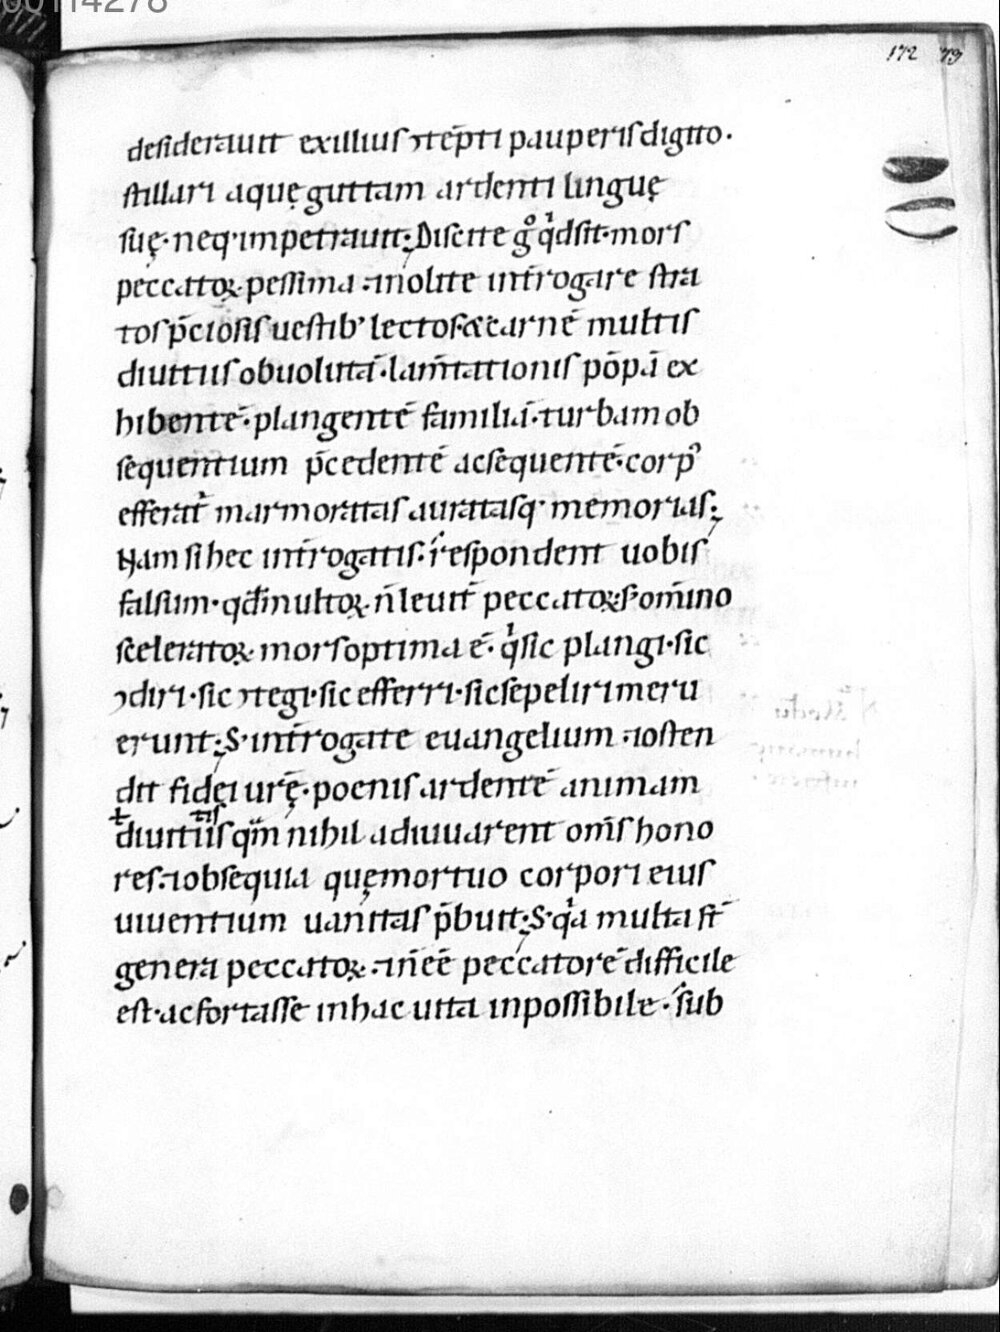 00114278
172 79
deſiderauit exilliuſ ↄtēpti pauperiſ digito.
ſtillari aquę guttam ardenti linguę
ſuę· neq· impetrauit; Diſcite gͦ qͥd ſit· morſ
peccatoꝝ peſſima ⁊ nolite int̄rogare ſtra
toſ p̄cioſiſ ueſtib’ lectoſ· & carnē multiſ
diuitiiſ obuolutā· lam̄tationiſ pōpā ex
hibentē· plangentē familiā· turbam ob
ſequentium p̄cedentē ac ſequentē· corpꝰ
efferat̄ marmorataſ aurataſq· memoriaſ;
Nam ſi hec int̄rogatiſ· reſpondent uobiſ
falſum· qđ in ultoꝝ n̄ leuit̄ peccatoꝝ ſ· om̄ino
ſceleratoꝝ morſ optima ē· qͥ ſic plangi· ſic
ↄdiri· ſic ↄtegi· ſic efferri· ſic ſepeliri meru
erunt; S· int̄rogate euangelium ⁊ oſten
dit fidęi urę̄· poeniſ ardentē animam
diuitiiſ qm̄ nihil adiuuarent om̄ſ hono
reſ· ⁊ obſequia quę mortuo corpori eiuſ
uiuentium uanitaſ p̄buit; S· qͥa multa ſt̄
genera peccatoꝝ ⁊ n̄ eē peccatorē difficile
eſt· ac fortaſſe in hac uita inpoſſibile· ſub